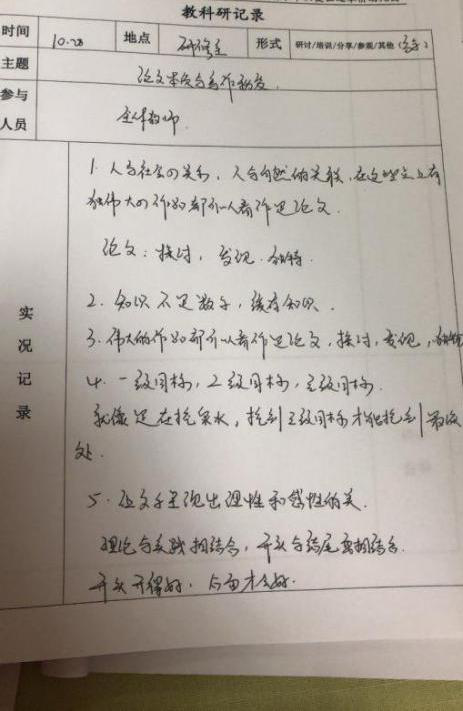 教科研记录
时间 10.28 地点 研修室 形式 研讨/培训/分享/参观/其他( )
主题 论文本质与写作
参与人员 全体教师
实况记录
1. 人与社会的关系,人与自然的关联,在这
伟大的作品都可以看作是论文.
论文:探讨,发现.独特.
2. 知识不是数字, 知识.
3. 伟大的作品都可以看作是论文,探讨,发现,独特
4. 一级目标,2级目标,三级目标.
就像是在挖泉水,挖到三级目标才能挖到最深
处.
5. 论文呈现出理性和感性的美.
理论与实践相结合,开头与结尾要相结合.
开头开得好.后面才会好.